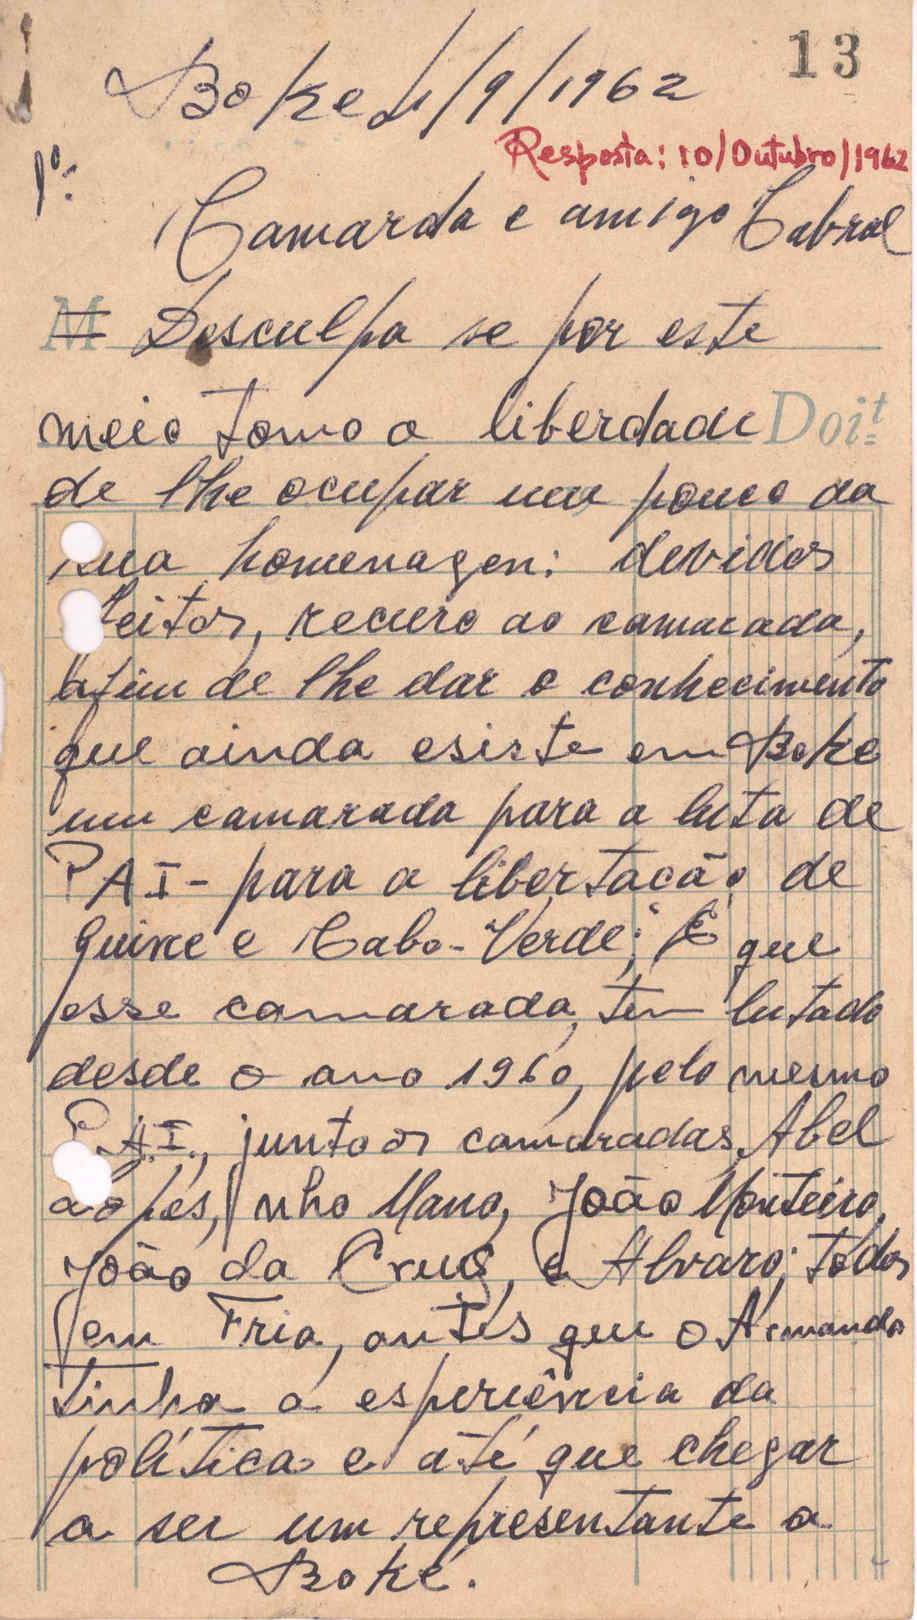 13
Boke 11/9/1962
Resposta: 10/Outubro/1962
1º:
Camarda e amigo Cabral
M Desculpa se por este
meio tomo a liberdade Doit
de lhe ocupar um pouco da
sua homenagen: devidos
feitos, recurro ao camarada,
afim de lhe dar o conhecimento
que ainda esiste em Boke
um camarada para a luta de
PAI- para a libertacão de
Guine e Cabo-Verde; É que
esse camarada, tem lutado
desde o ano 1960, pelo mesmo
P.A.I., junto os camaradas, Abel
Lopes, nho Mano, João Monteiro,
João da Cruz, e Alvaro; todos
em Fria, antes que o Armando
tinha a esperiência da
polítíca e até que chegar
a ser um representante a
Boké.